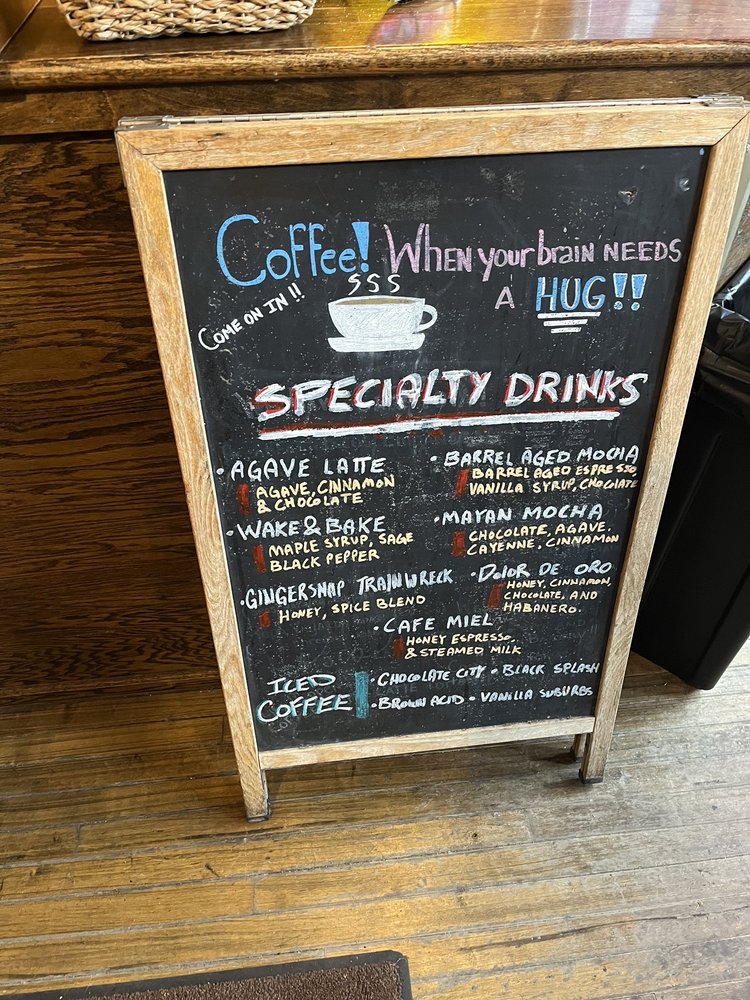 Coffee! When your brain NEEDS
A HUG!!
COME ON IN!!
SPECIALTY DRINKS
• AGAVE LATTE
AGAVE, CINNAMON
& CHOCOLATE
• WAKE & BAKE
MAPLE SYRUP, SAGE
BLACK PEPPER
• GINGERSNAP TRAINWRECK
HONEY, SPICE BLEND
• BARREL AGED MOCHA
BARREL AGED ESPRESSO,
VANILLA SYRUP, CHOCLATE
• MAYAN MOCHA
CHOCOLATE, AGAVE,
CAYENNE, CINNAMON
• DOLOR DE ORO
HONEY, CINNAMON,
CHOCOLATE, AND
HABANERO.
• CAFE MIEL
HONEY ESPRESSO,
& STEAMED MILK
ICED
COFFEE
• CHOCOLATE CITY • BLACK SPLASH
• BROWN ACID • VANILLA SUBURBS